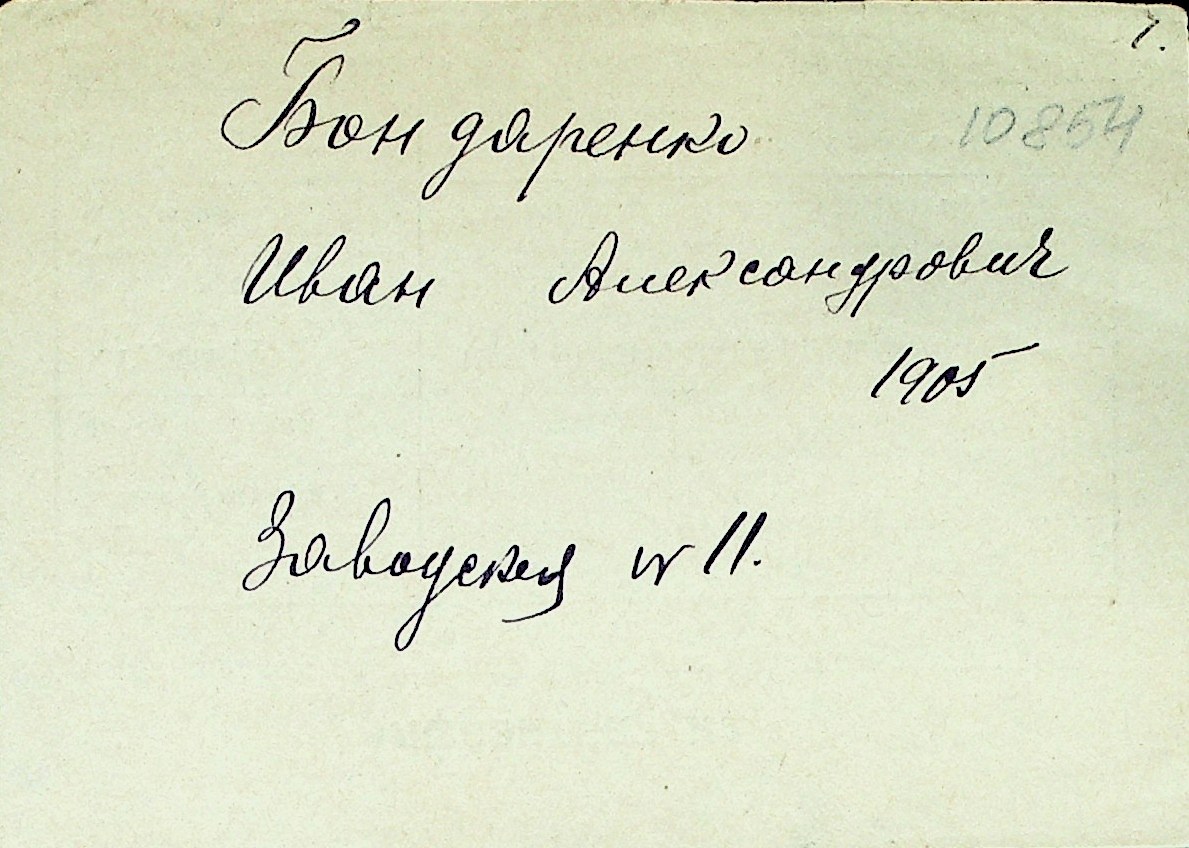 7.
10854
Бондаренко
Иван Александрович
1905
Заводская № 11.